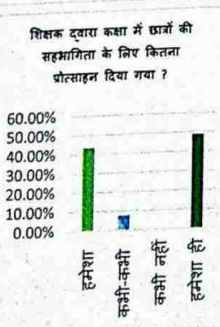 शिक्षक द्वारा कक्षा में छात्रों की
सहभागिता के लिए कितना
प्रोत्साहन दिया गया ?
60.00%
50.00%
40.00%
30.00%
20.00%
10.00%
0.00%
हमेशा
कभी-कभी
कभी नहीं
हमेशा ही